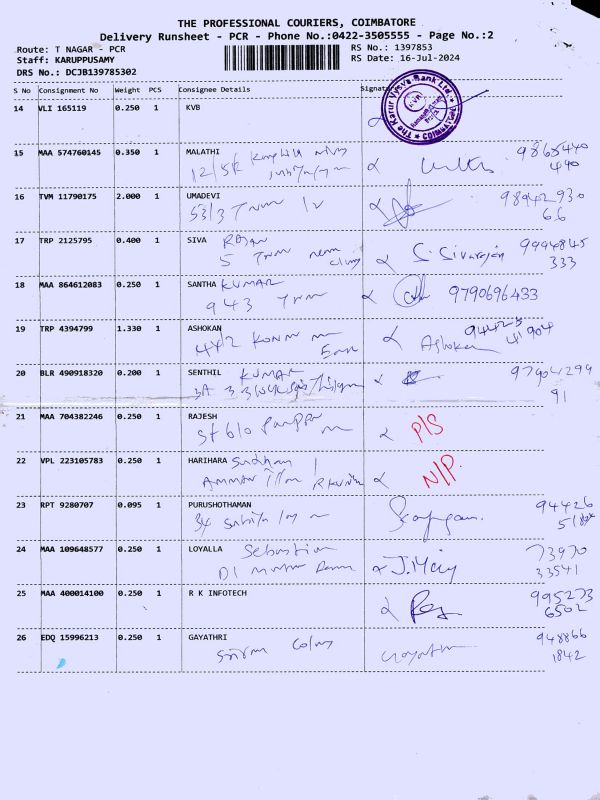 THE PROFESSIONAL COURIERS, COIMBATORE
Delivery Runsheet - PCR - Phone No.:0422-3505555 - Page No.:2
Route: T NAGAR - PCR RS No.: 1397853
Staff: KARUPPUSAMY RS Date: 16-Jul-2024
DRS No.: DCJB139785302
S No Consignment No Weight PCS Consignee Details Signature
14 VLI 165119 0.250 1 KVB
The Karur Vysya Bank Ltd. COIMBATORE
15 MAA 574760145 0.350 1 MALATHI
12/5K 9865440
490
16 TVM 11790175 2.000 1 UMADEVI
53/3 98942930
66
17 TRP 2125795 0.400 1 SIVA RAJAN
5 S. Sivarajan 9994845
333
18 MAA 864612083 0.250 1 SANTHA KUMAR
943 9790696433
19 TRP 4394799 1.330 1 ASHOKAN
44/2 Ashokan 94425
41904
20 BLR 490918320 0.200 1 SENTHIL KUMAR
3A 97904299
91
21 MAA 704382246 0.250 1 RAJESH
P/S
22 VPL 223105783 0.250 1 HARIHARA
AMMAN N/P.
23 RPT 9280707 0.095 1 PURUSHOTHAMAN
34 94426
24 MAA 109648577 0.250 1 LOYALLA Sebastian
D1 J. Mary 73970
33541
25 MAA 400014100 0.250 1 R K INFOTECH
995273
6502
26 EDQ 15996213 0.250 1 GAYATHRI
Colony Gayathri 948866
1842